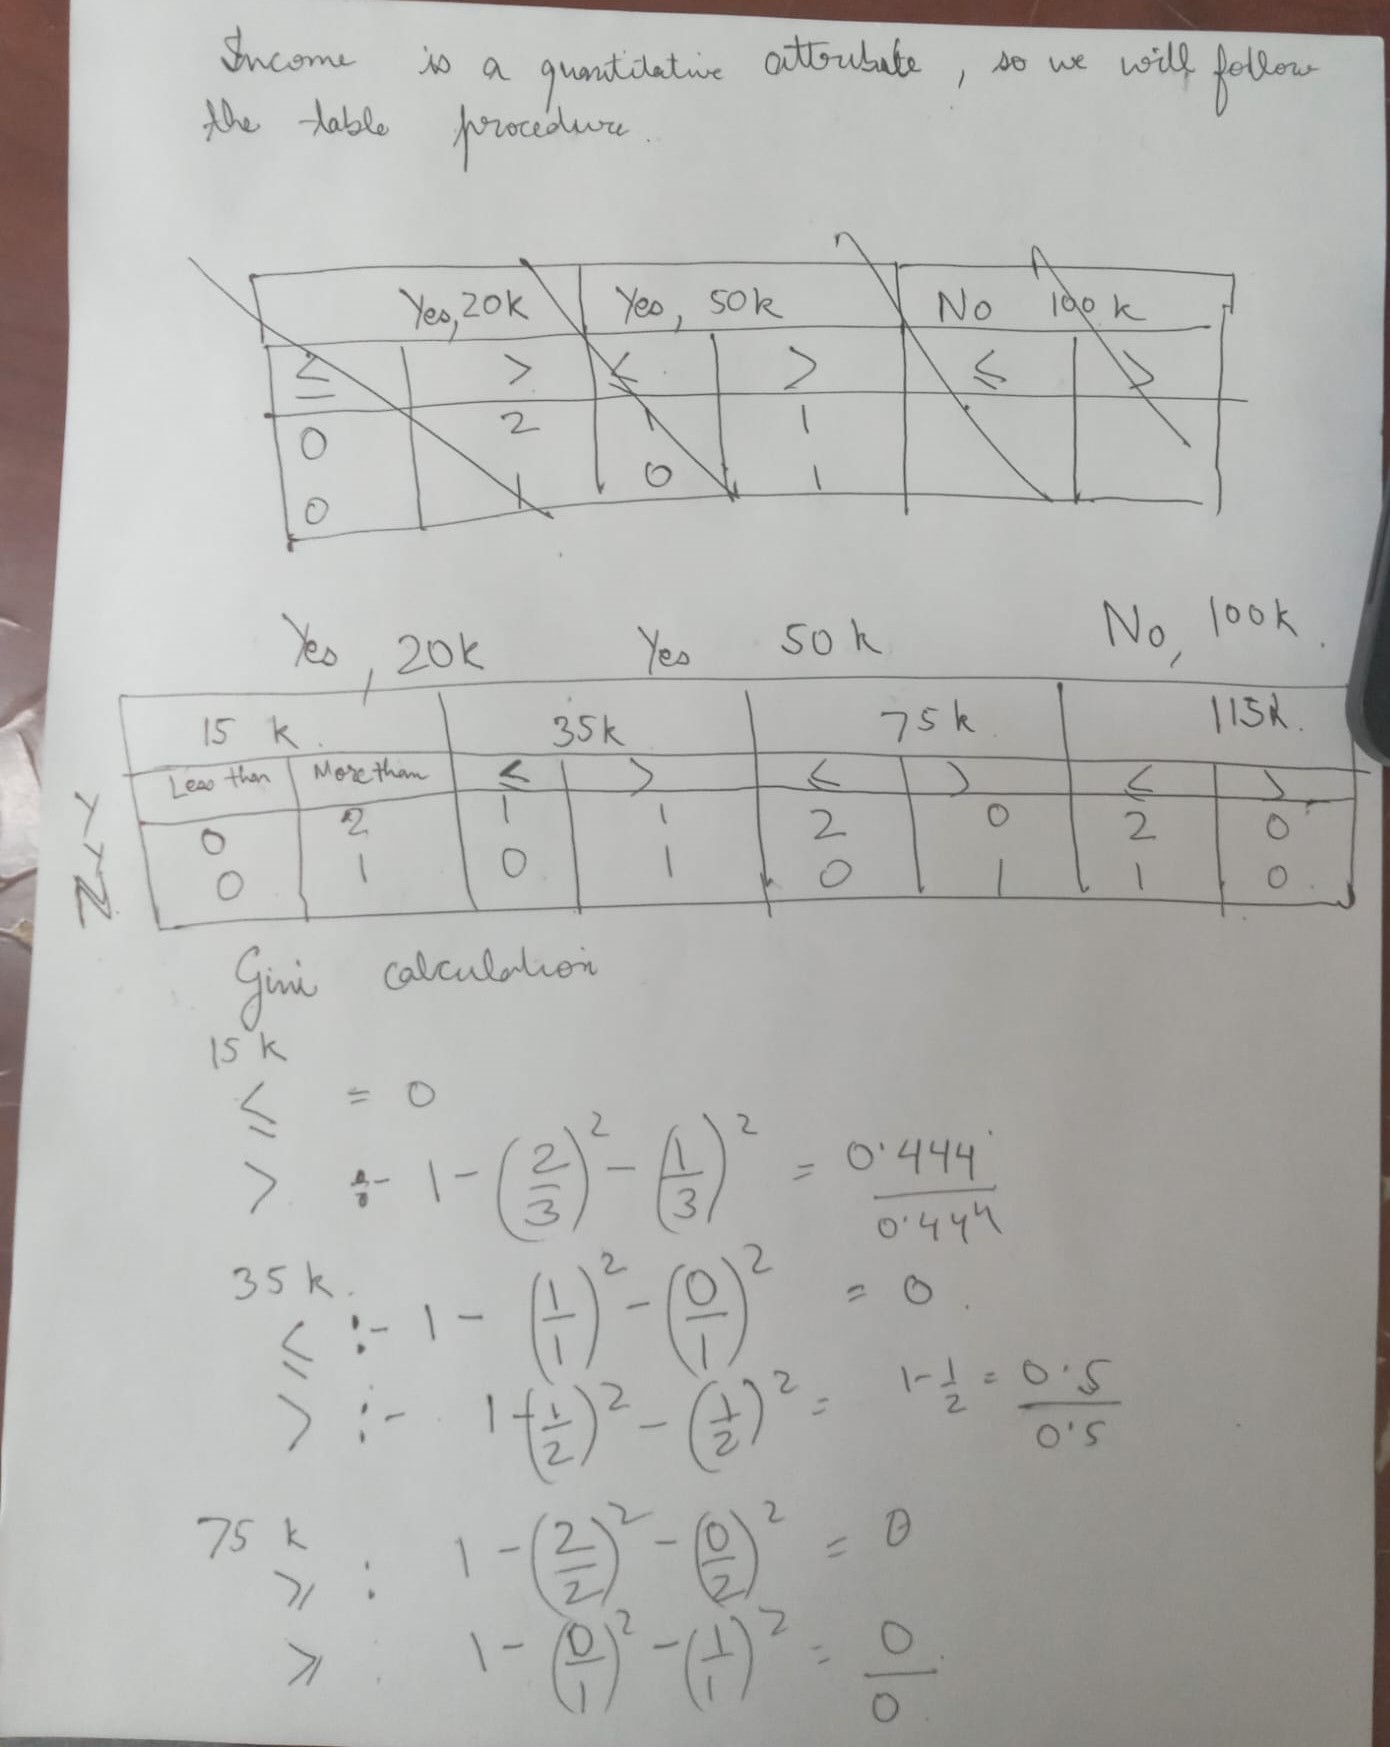 Income is a quantitative attribute, so we will follow
the table procedure.
Yes, 20k Yes, 50k No 100k
≤ > ≤ > ≤ >
0 2 1 1
0 1 0 1
Yes, 20k Yes 50k No, 100k.
15 k. 35k 75k 115k.
Less than More than ≤ > ≤ > ≤ >
Y 0 2 1 1 2 0 2 0
N 0 1 0 1 0 1 1 0
Gini calculation
15 k
≤ = 0
> :- 1 - (2/3)² - (1/3)² = 0.444
0.444
35k.
≤ :- 1 - (1/1)² - (0/1)² = 0.
> :- 1 - (1/2)² - (1/2)² = 1 - 1/2 = 0.5
0.5
75 k
⩾ : 1 - (2/2)² - (0/2)² = 0
> : 1 - (0/1)² - (1/1)² = 0
0